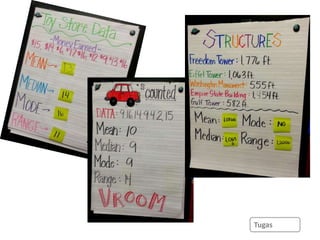 Toy Store Data
Money Earned
MEAN →
MEDIAN →
14
MODE →
RANGE →
11
counted
DATA: 9,16,14,9,4,2,15
Mean: 10
Median: 9
Mode: 9
Range: 14
VROOM
STRUCTURES
Freedom Tower: 1,776 ft.
Eiffel Tower: 1,063 ft
Washington Monument: 555 ft
Empire State Building: 1,454 ft
Gulf Tower: 582 ft.
Mean:
Mode: NO
Median:
Range:
Tugas